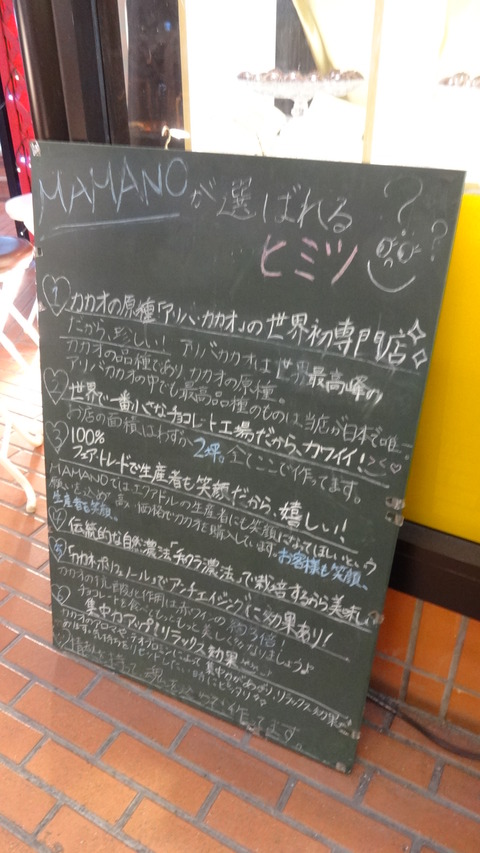 MAMANOが選ばれる
ヒミツ
1 カカオの原種「アリバ・カカオ」の世界初専門店
だから、珍しい! アリバカカオは世界最高峰の
カカオの品種であり カカオの原種。
アリバカカオの中でも最高品種のものは当店が日本で唯一
2 世界で一番小さなチョコレート工場だから、カワイイ!><♡
お店の面積はわずか2坪。全てここで作ってます。
3 100%
フェアトレードで生産者も笑顔だから、嬉しい!
MAMANOではエクアドルの生産者にも笑顔になてほしいという
願いを込めて高い価格でカカオを購入しています。お客様も笑顔、
生産者も笑顔。
4 伝統的な自然農法「チャクラ農法」で栽培するから美味しい
5 「カカオポリフェノール」でアンチエイジングに効果あり!
カカオの抗酸化作用は赤ワインの
チョコレートを食べてもっともっと美しくなりましょうよ
6 集中力アップ!リラックス効果
カカオのアロマやテオブロミンによって集中力があがり、リラックス効果
作ってます。